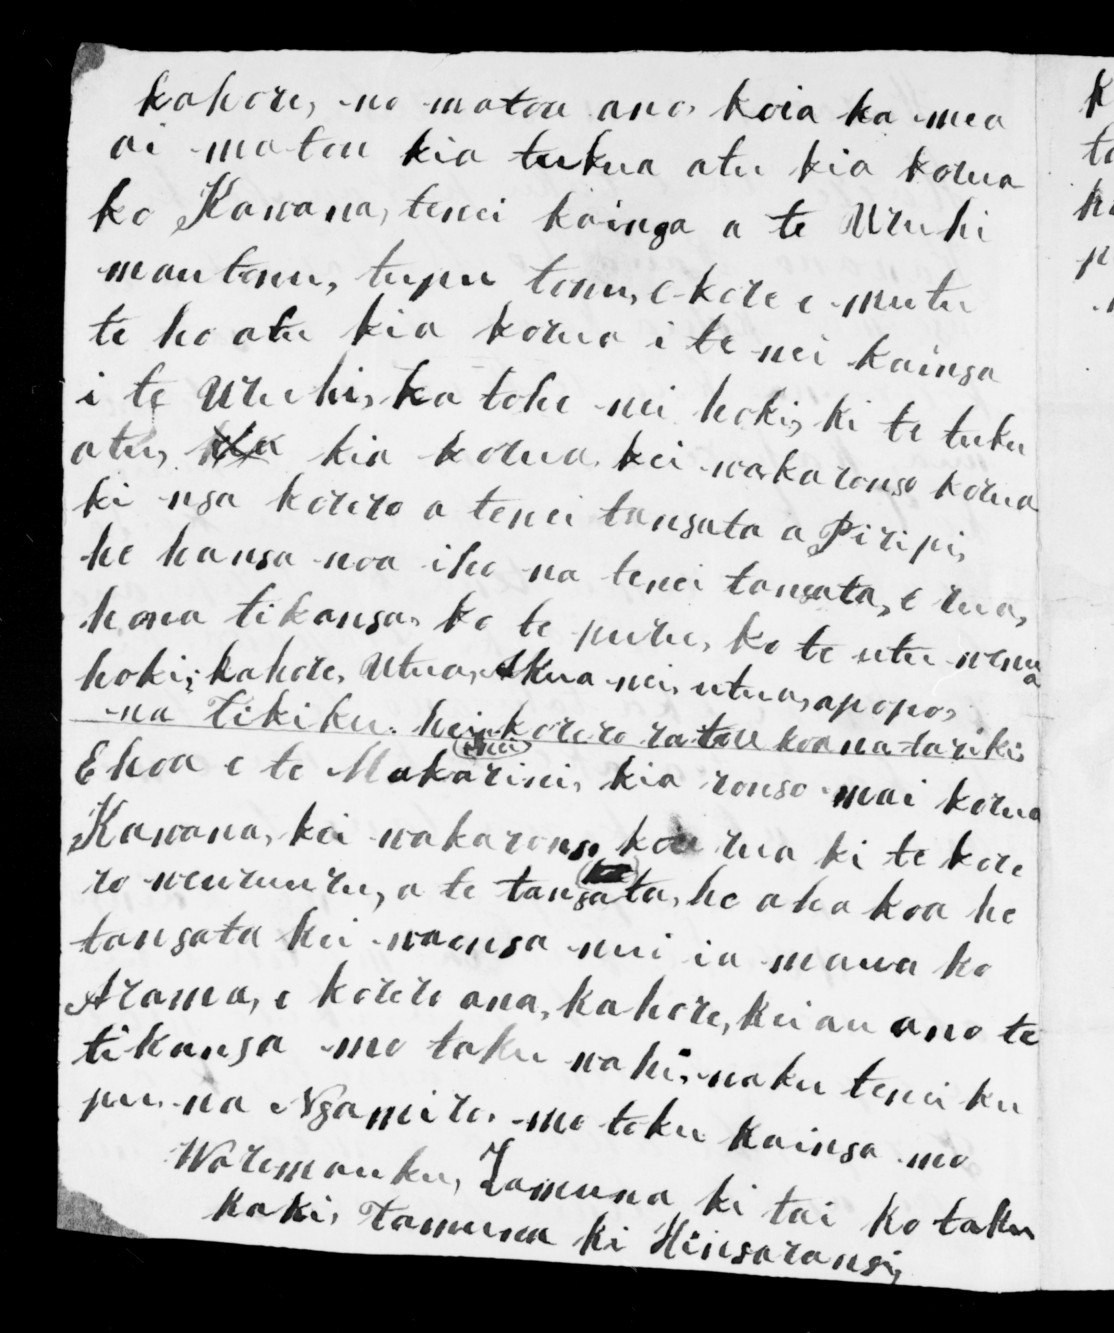 kahore, no matou ano, koia ka mea
ai matou kia tukua atu kia korua
ko Kawana, tenei kainga a te Uruhi
mau tonu, tupu tonu, e kore e mutu
te ho atu kia korua i te nei kainga
i te Uruhi, ka tohe nei hoki, ki te tuku
atu, kia korua. kei wakarongo korua
ki nga korero a tenei tangata a Piripi,
he hanga noa iho na tenei tangata, e rua,
hona tikanga, ko te puru, ko te utu wenua
hoki; kahore, Utua, akua nei, utua, apopo,
na Tikiku. hei korero ratou koa na tariki
Ehoa e te Makarini, kia rongo mai korua
Kawana, kei wakarongo korua ki te kore
ro wenruuru, a te tangata, he aha koa he
tangata kei waenga nui ia maua ko
Arama, e korero ana, kahore, kei au ano te
tikanga mo taku wahi, naku tenei ku
pu. na Ngamiro. mo toku kainga mo
Waremauku, Tamuna ki tai ko taku
kaki, Tamuna ki Hingarangi,
K
ta
p